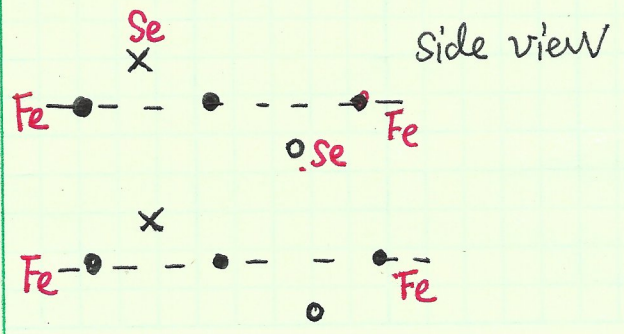 Se
side view
Fe
Fe
Se
Fe
Fe